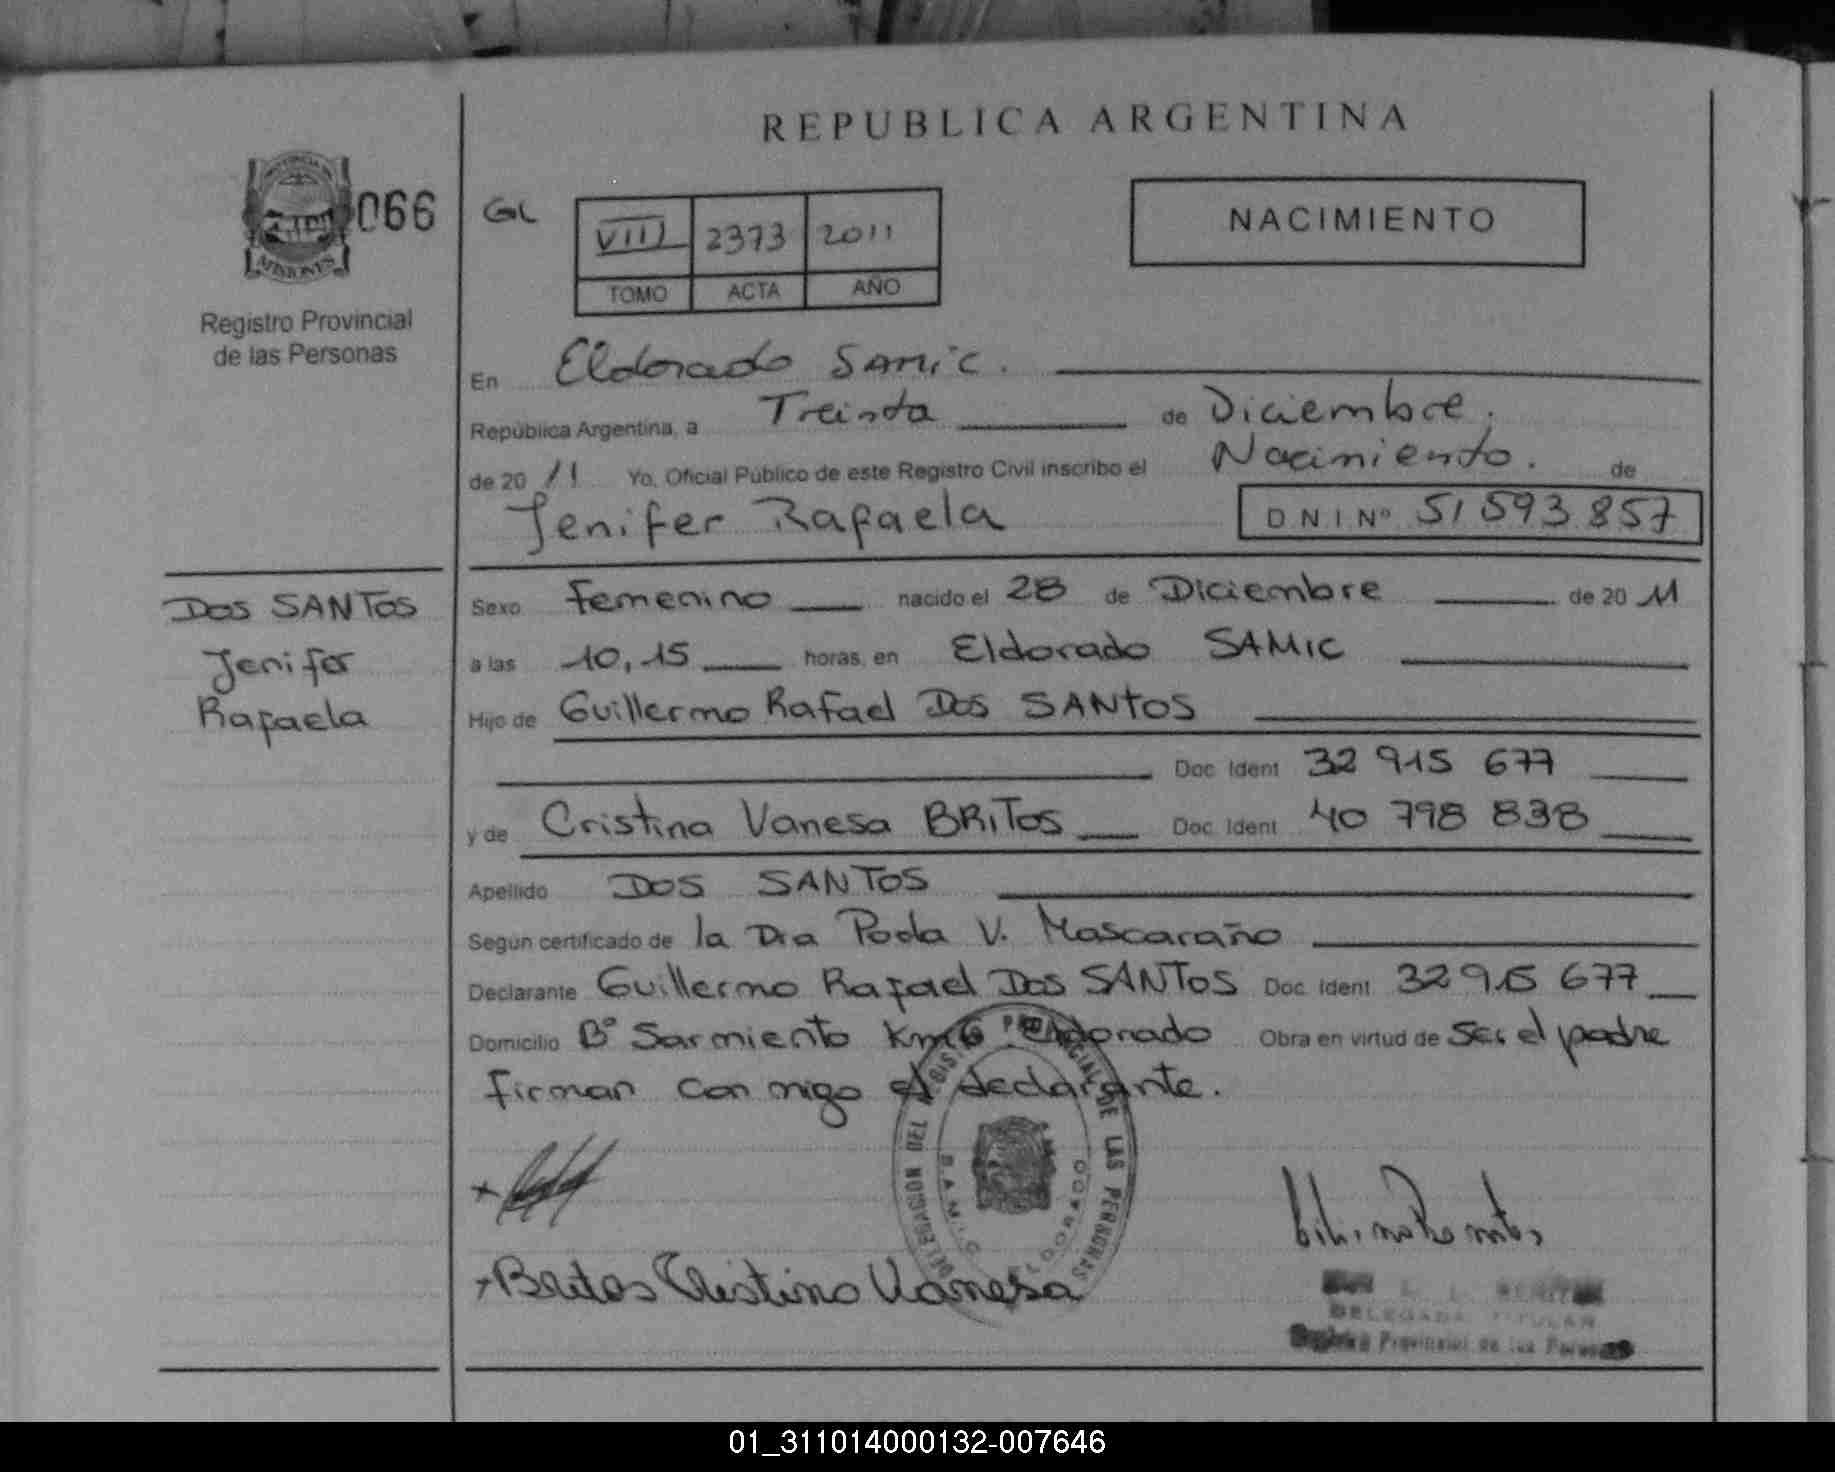 REPUBLICA ARGENTINA
PROVINCIA DE
MISIONES
066
GL
VIII 2373 2011
TOMO ACTA AÑO
NACIMIENTO
Registro Provincial
de las Personas
En Eldorado SAMIC.
República Argentina, a Treinta de Diciembre.
de 20 11 Yo, Oficial Público de este Registro Civil inscribo el Nacimiento. de
Jenifer Rafaela DNI Nº 51 593 857
DOS SANTOS
Jenifer
Rafaela
Sexo Femenino nacido el 28 de Diciembre de 20 11
a las 10,15 horas, en Eldorado SAMIC
Hijo de Guillermo Rafael Dos SANTOS
Doc. Ident 32 915 677
y de Cristina Vanesa BRITOS Doc. Ident 40 798 838
Apellido DOS SANTOS
Según certificado de la Dra V. Mascaraño
Declarante Guillermo Rafael Dos SANTOS Doc. Ident 32 915 677
Domicilio Bº Sarmiento Km 6 Eldorado Obra en virtud de Ser el padre
firman con migo el declarante.
DELEGACION DEL REGISTRO PROVINCIAL DE LAS PERSONAS
S.A.M.I.C. ELDORADO
Britos Cristina Vanesa
DELEGADA TITULAR
Registro Provincial de las Personas
01_311014000132-007646